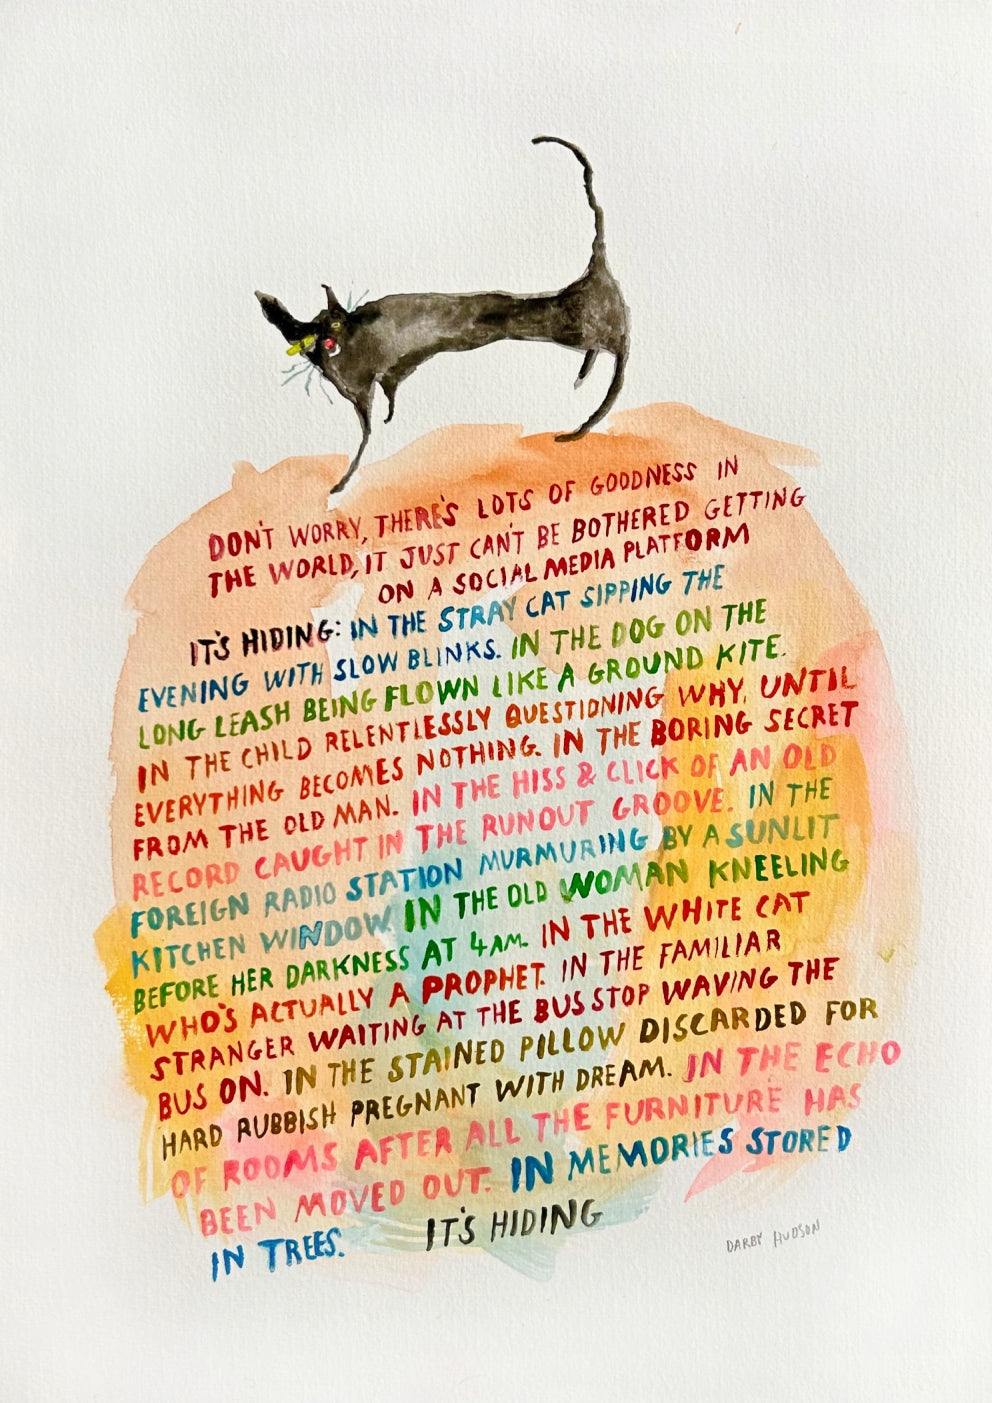 DON'T WORRY, THERE'S LOTS OF GOODNESS IN
THE WORLD, IT JUST CAN'T BE BOTHERED GETTING
ON A SOCIAL MEDIA PLATFORM
IT'S HIDING: IN THE STRAY CAT SIPPING THE
EVENING WITH SLOW BLINKS. IN THE DOG ON THE
LONG LEASH BEING FLOWN LIKE A GROUND KITE.
IN THE CHILD RELENTLESSLY QUESTIONING WHY, UNTIL
EVERYTHING BECOMES NOTHING. IN THE BORING SECRET
FROM THE OLD MAN. IN THE HISS & CLICK OF AN OLD
RECORD CAUGHT IN THE RUNOUT GROOVE. IN THE
FOREIGN RADIO STATION MURMURING BY A SUNLIT
KITCHEN WINDOW. IN THE OLD WOMAN KNEELING
BEFORE HER DARKNESS AT 4AM. IN THE WHITE CAT
WHO'S ACTUALLY A PROPHET. IN THE FAMILIAR
STRANGER WAITING AT THE BUS STOP WAVING THE
BUS ON. IN THE STAINED PILLOW DISCARDED FOR
HARD RUBBISH PREGNANT WITH DREAM. IN THE ECHO
OF ROOMS AFTER ALL THE FURNITURE HAS
BEEN MOVED OUT. IN MEMORIES STORED
IN TREES. IT'S HIDING
DARBY HUDSON